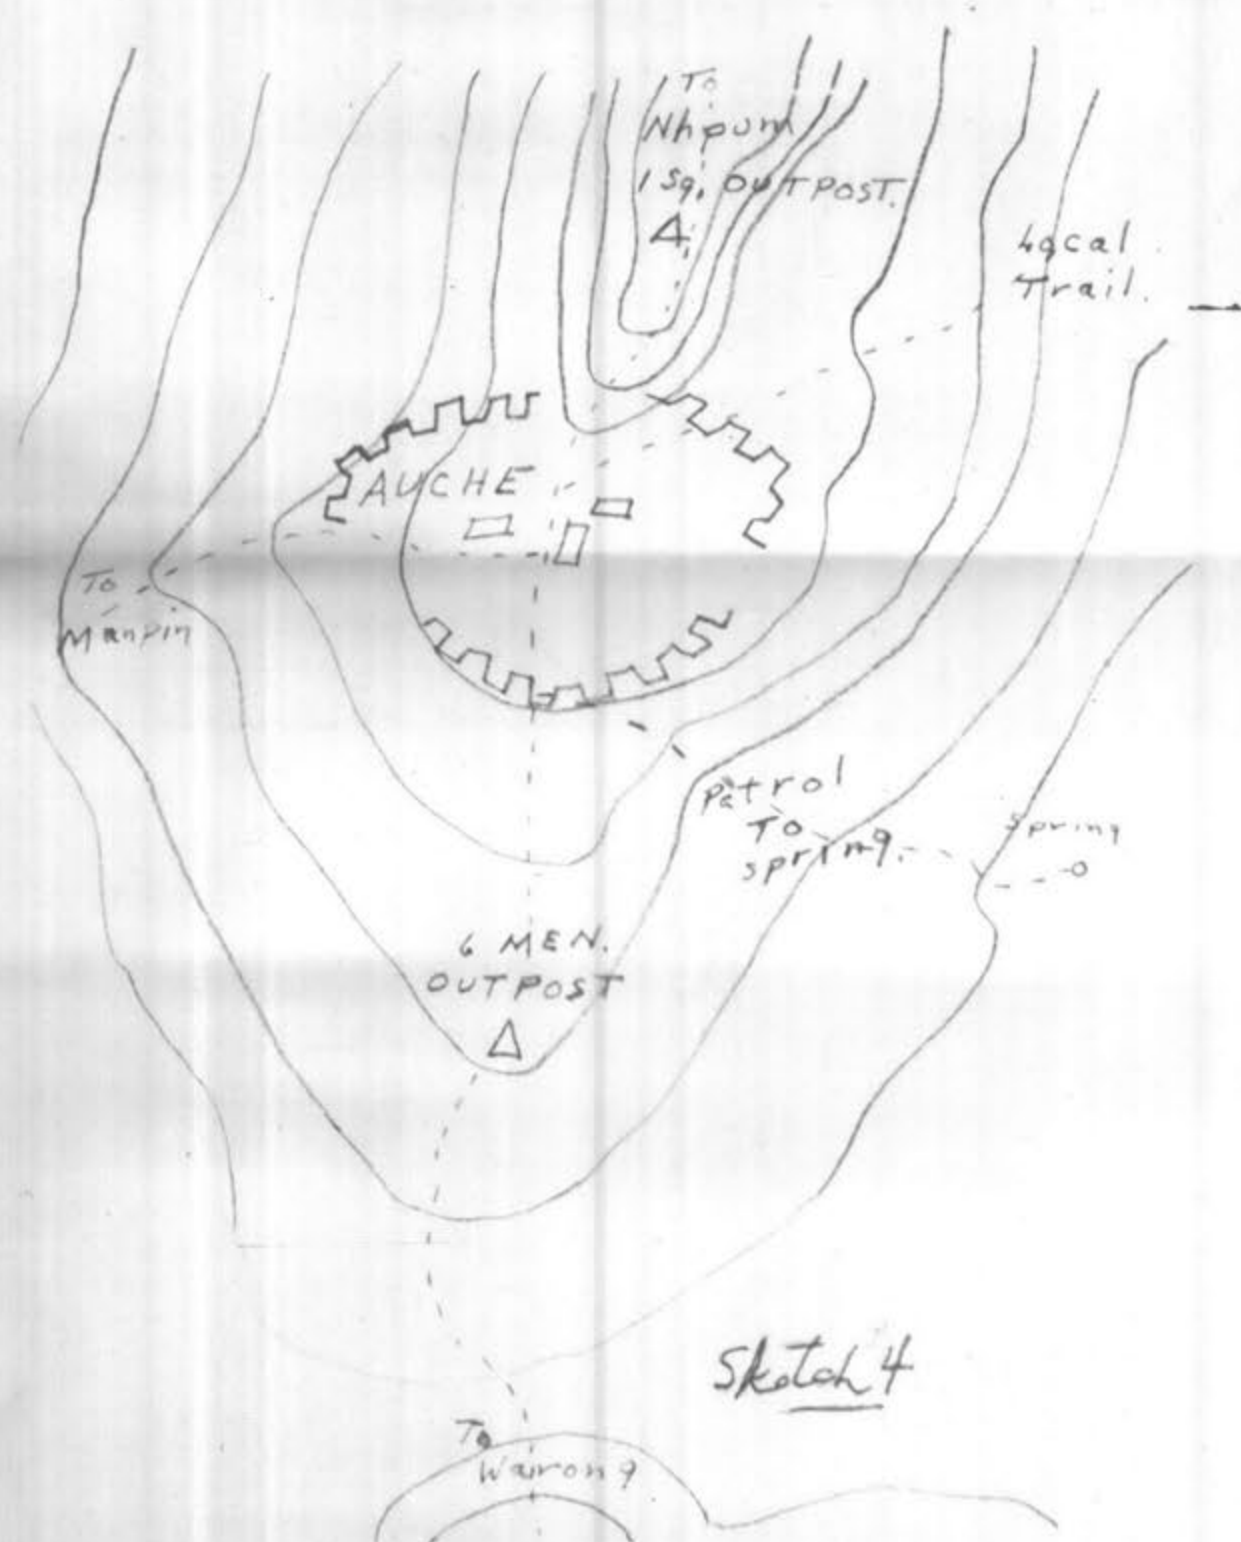 To
Nhpum
1 Sq. OUTPOST.
Local
Trail.
AUCHE
To
Manpin
Patrol
To
spring.
Spring
6 MEN.
OUTPOST
Sketch 4
To
Wairong